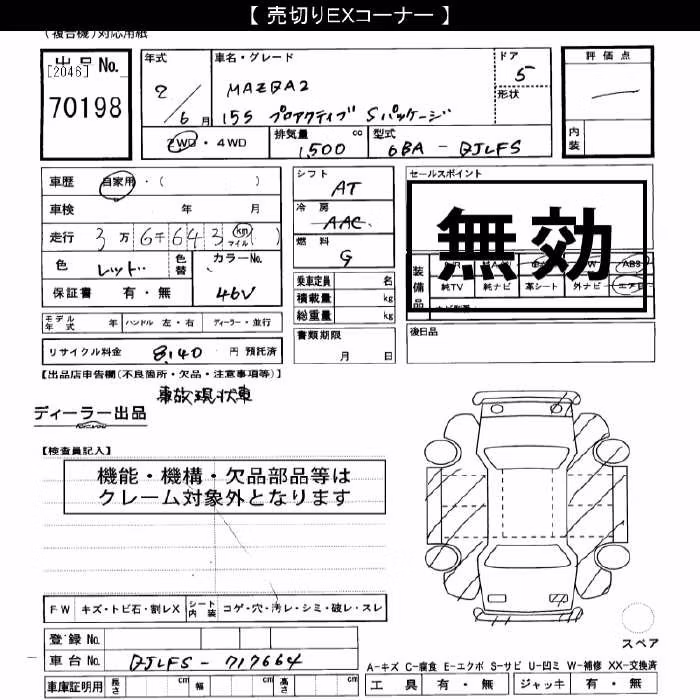 【 売切りEXコーナー 】
(複合機)対応用紙
出品No.
[2046]
70198
年式
2/6月
車名・グレード
MAZDA2
15S プロアクティブ Sパッケージ
ドア
5
形状
評価点
内装
2WD・4WD
排気量 cc
1,500
型式
6BA - DJLFS
車歴 自家用・( )
車検 年 月
走行 3万6千643 km マイル ( )
色 レッド
色替
カラーNo.
46V
保証書 有・無
シフト
AT
冷房
AAC
燃料
G
乗車定員 名
積載量 kg
総重量 kg
書類期限
月 日
セールスポイント
無効
装備品
ABS
純TV 純ナビ 革シート 外ナビ エアロ
後日品
モデル年式 年 ハンドル 左・右 ディーラー・並行
リサイクル料金 8,140 円 預託済
【出品店申告欄(不良箇所・欠品・注意事項等)】
事故現状車
ディーラー出品
【検査員記入】
機能・機構・欠品部品等は
クレーム対象外となります
FW キズ・トビ石・割レX シート内装 コゲ・穴・汚レ・シミ・破レ・スレ
登録No.
車台No. DJLFS - 717664
車庫証明用 長さ cm 幅 cm 高さ cm
スペア
A-キズ C-腐食 E-エクボ S-サビ U-凹ミ W-補修 XX-交換済
工具 有・無 ジャッキ 有・無